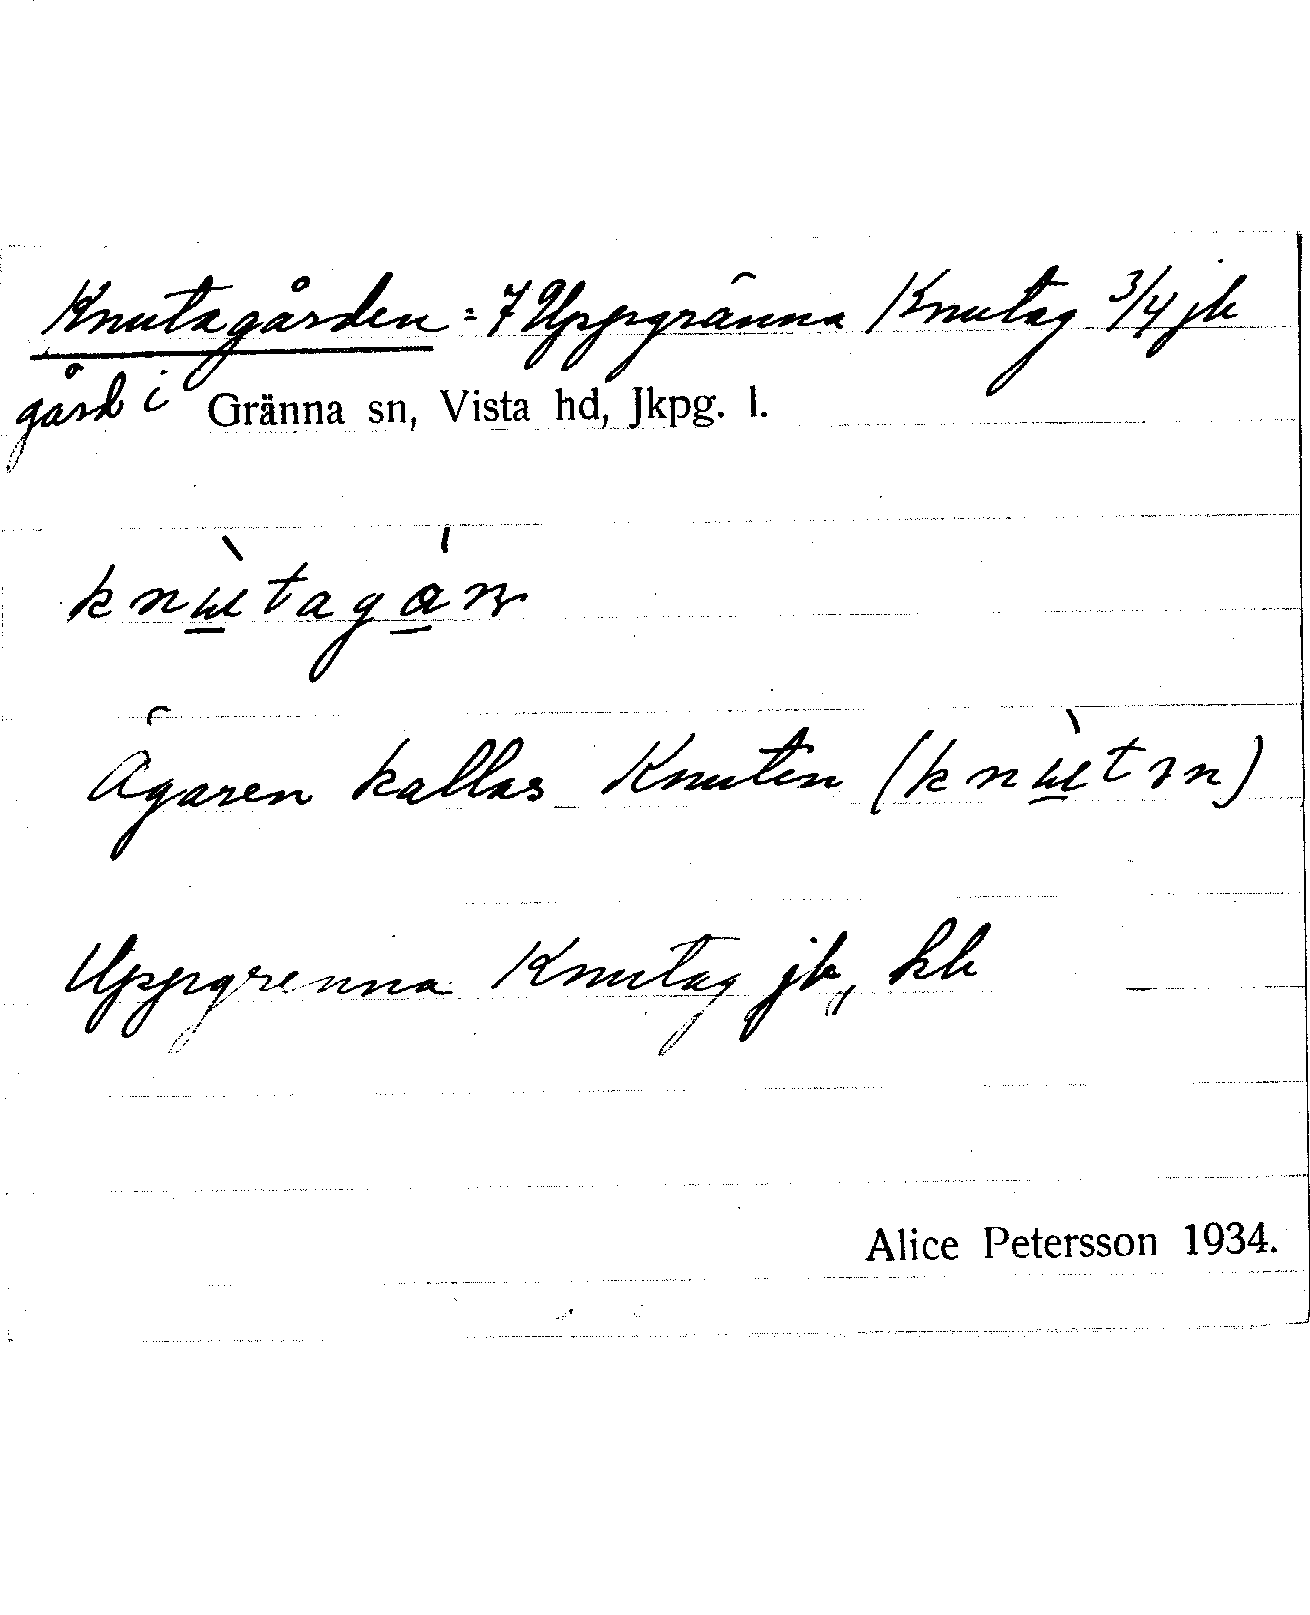 Knutagården = 7 Uppgränna Knutag 3/4 jb
gård i Gränna sn, Vista hd, Jkpg. l.
knɯ̀tagán
Ägaren kallas Knuten (knɯ̀tɘn)
Uppgrenna Knutag jb, kb
Alice Petersson 1934.